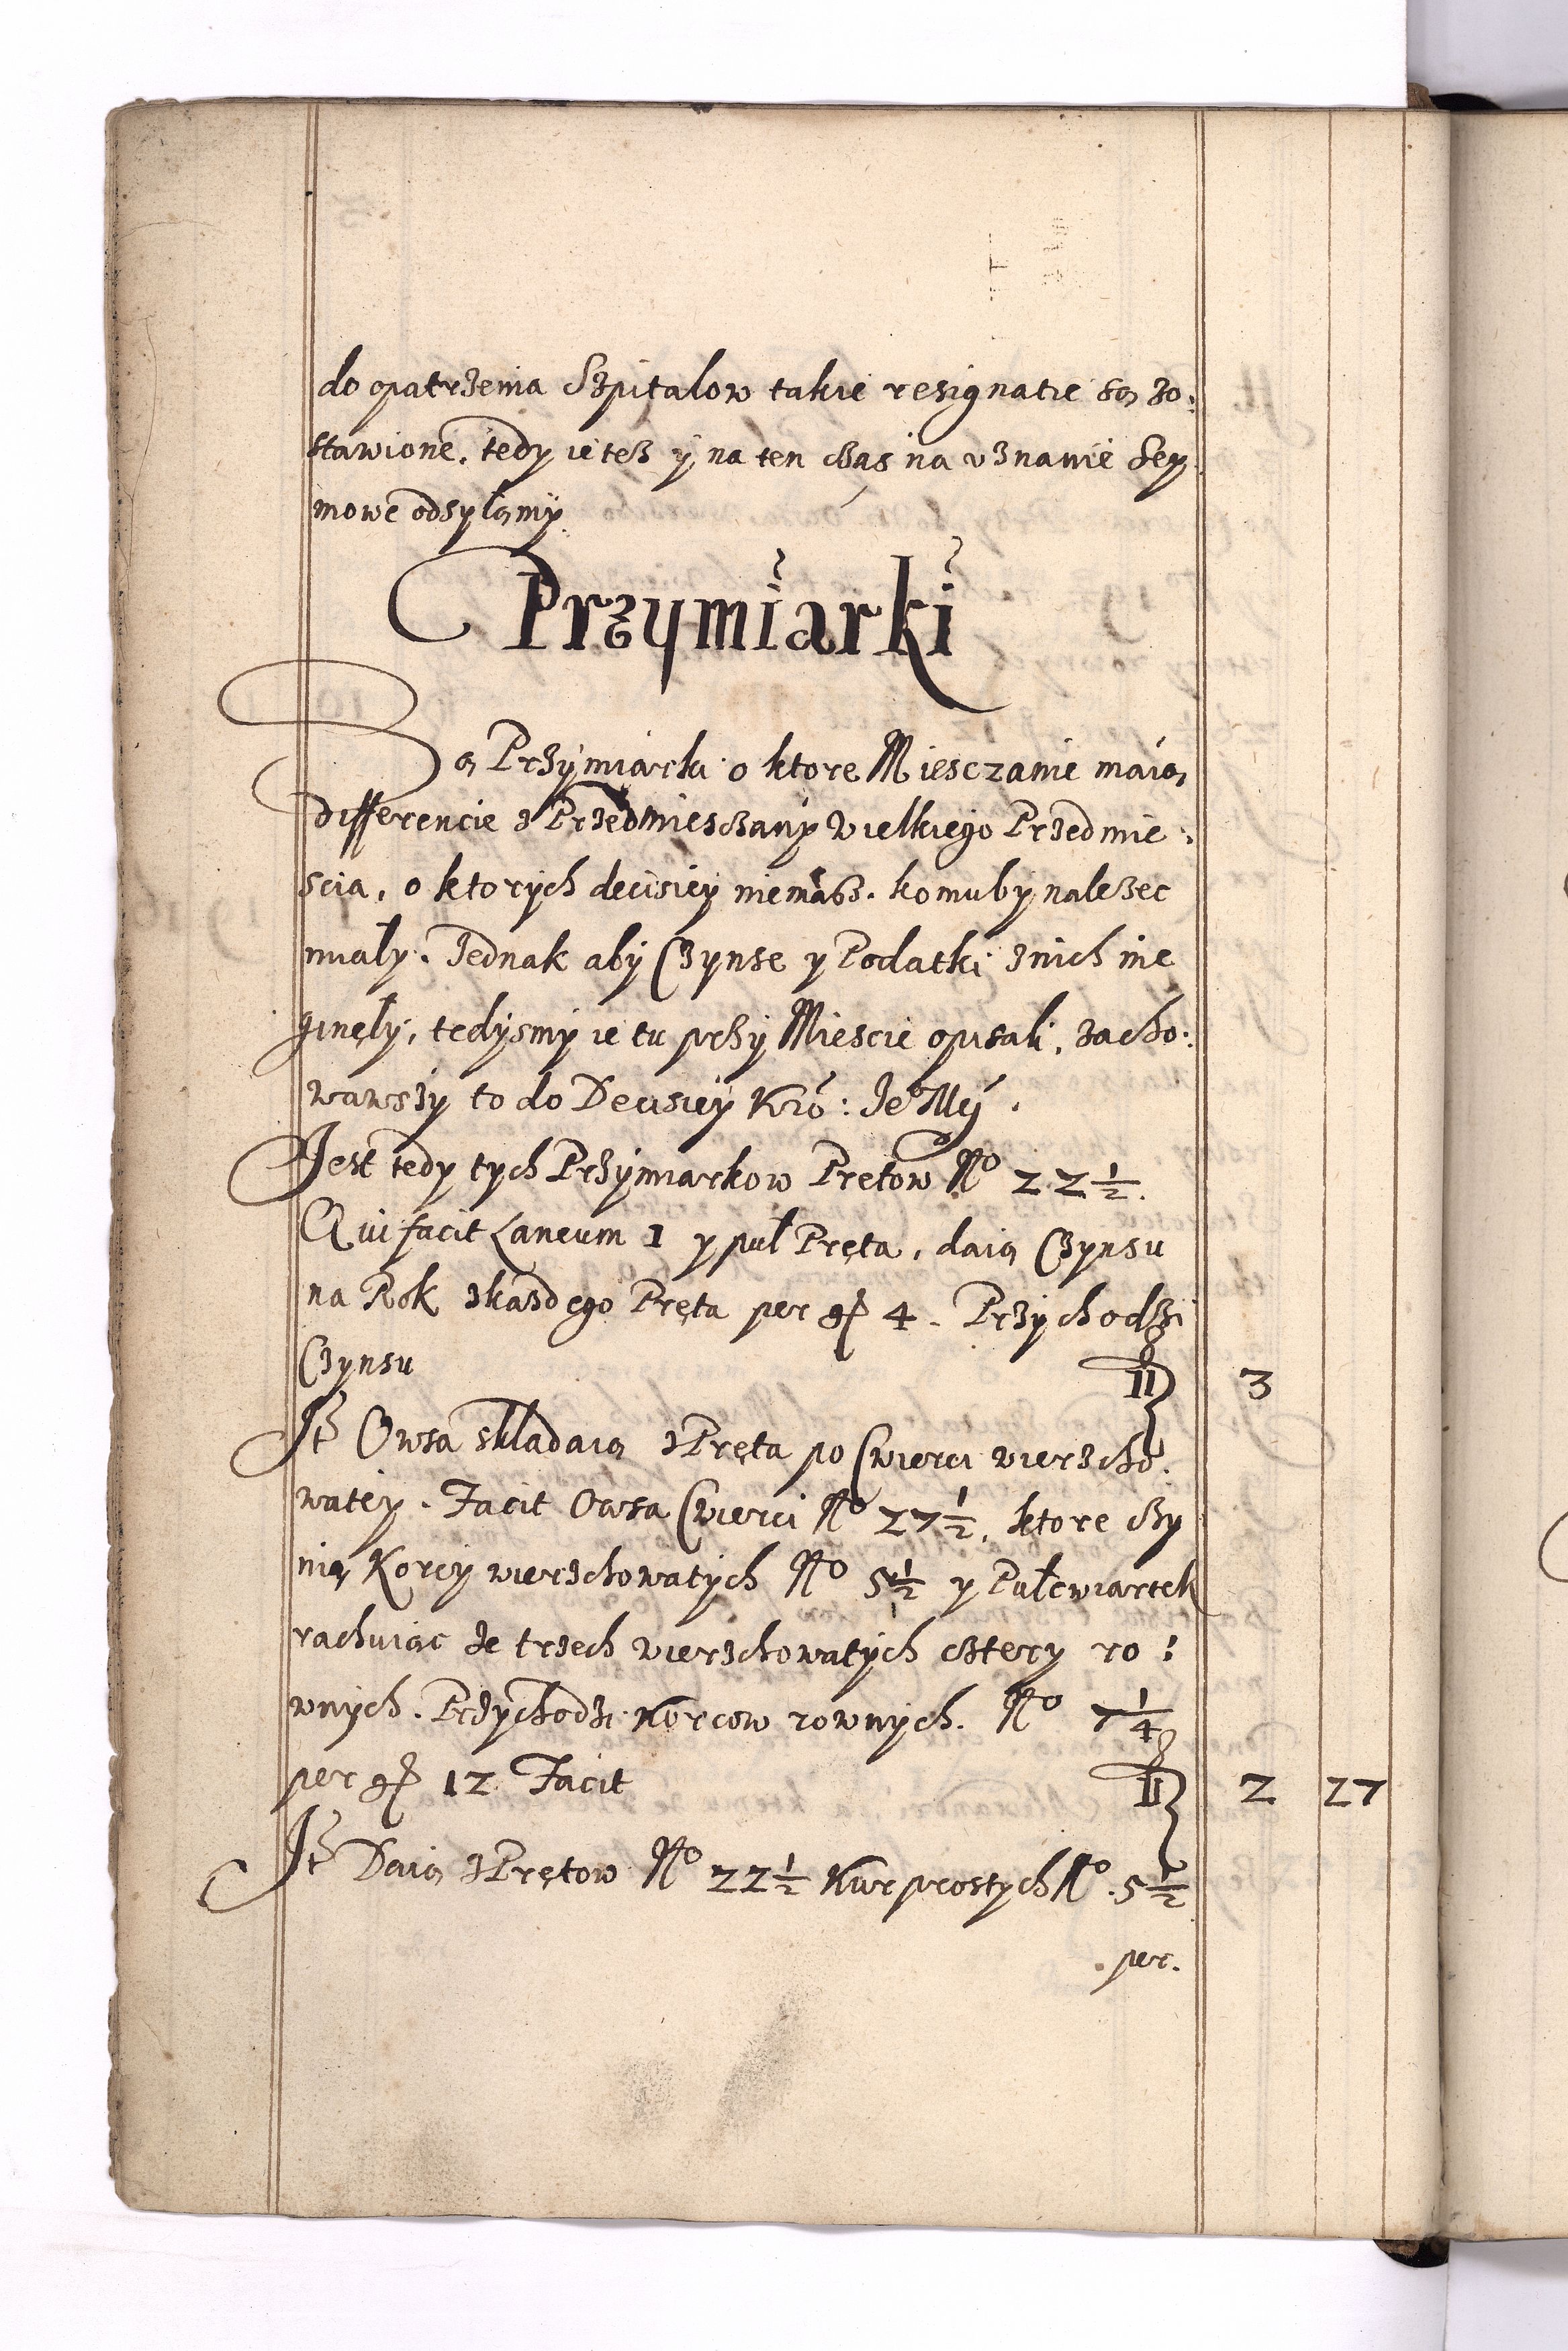 do opatrzenia Szpitalow takie resignatie są zo:
stawione, tedy ie też y na ten czas na uznanie Sey
mowe odsyłamy
Przymiarki
Są Przymiarki o ktore Miesczanie maią
differencie z Przedmiesczany Wielkiego Przedmie:
scia, o ktorych decisiey niemasz. komuby należec
miały. Jednak aby Czynse y Podatki znich nie
ginęły, tedysmy ie tu przy Miescie opisali, zacho:
wawszy to do Decisiey Kró: Je° Mći.
Jest tedy tych Przymiarkow Prętow N° 22 1/2.
Qui facit Laneum 1 y puł Pręta, daią Czynsu
na Rok zkazdego Pręta per gr 4. Przychodzi
Czynsu fl 3
It Owsa składaią z Pręta po Cwierci wierzcho:
watey. Facit Owsa Cwierci N° 27 1/2, ktore czy
nią Korcy wierzchowatych N° 5 1/2 y Pułcwiartek
rachuiąc ze trzech wierzchowatych cztery ro:
wnych. Przychodzi Korcow rownych. N° 7 1/4
per gr 12 Facit fl 2 27
It Daią z Prętow N° 22 1/2 Kur prostych N° 5 1/2
per.